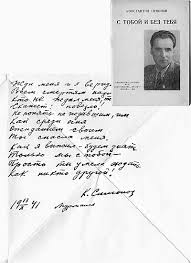 КОНСТАНТИН СИМОНОВ
С ТОБОЙ И БЕЗ ТЕБЯ
Жди меня и я вернусь
Всем смертям назло
кто не ждал меня, тот
скажет: повезло.
Не понять не ждавшим, им
как среди огня
Ожиданием своим
ты спасла меня.
Как я выжил – будем знать
Только мы с тобой –
Просто ты умела ждать
как никто другой.
К. Симонов
41